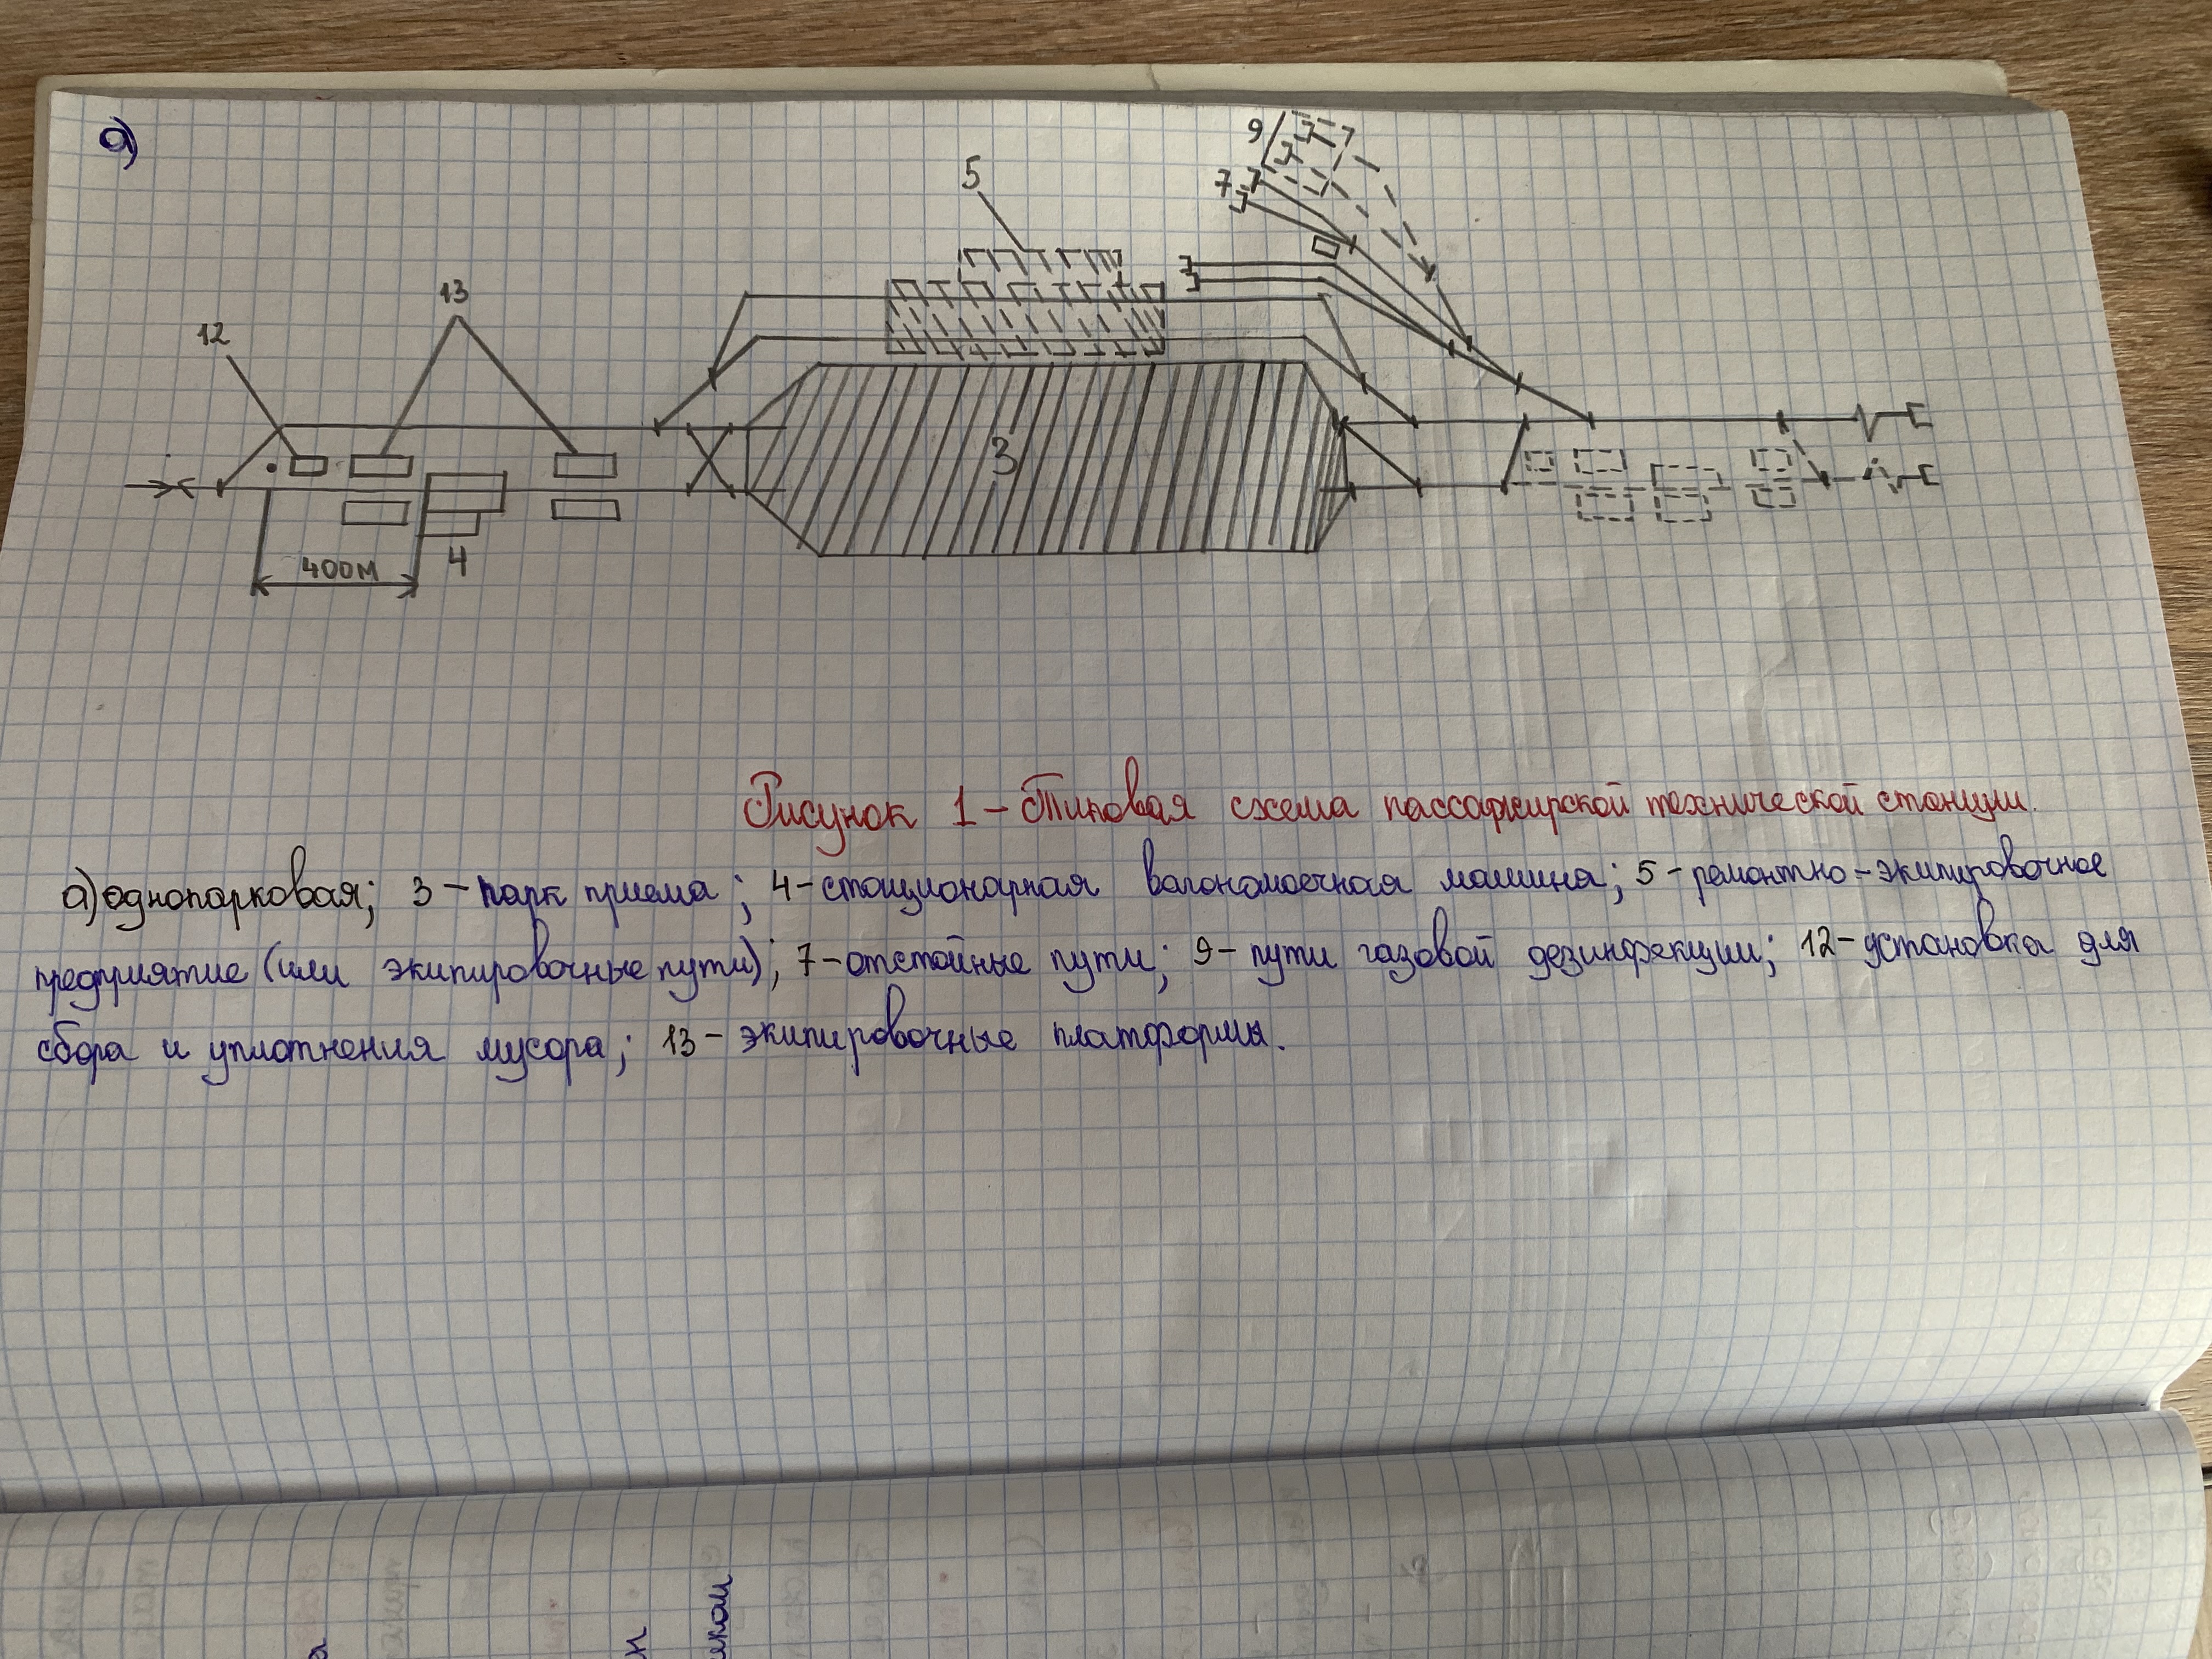 а)
9
5
7
13
12
3
400м
4
Рисунок 1 - Типовая схема пассажирской технической станции.
а) однопарковая; 3 - парк приема; 4 - стационарная вагономоечная машина; 5 - ремонтно-экипировочное
предприятие (или экипировочные пути); 7 - отстойные пути; 9 - пути газовой дезинфекции; 12 - установка для
сбора и уплотнения мусора; 13 - экипировочные платформы.